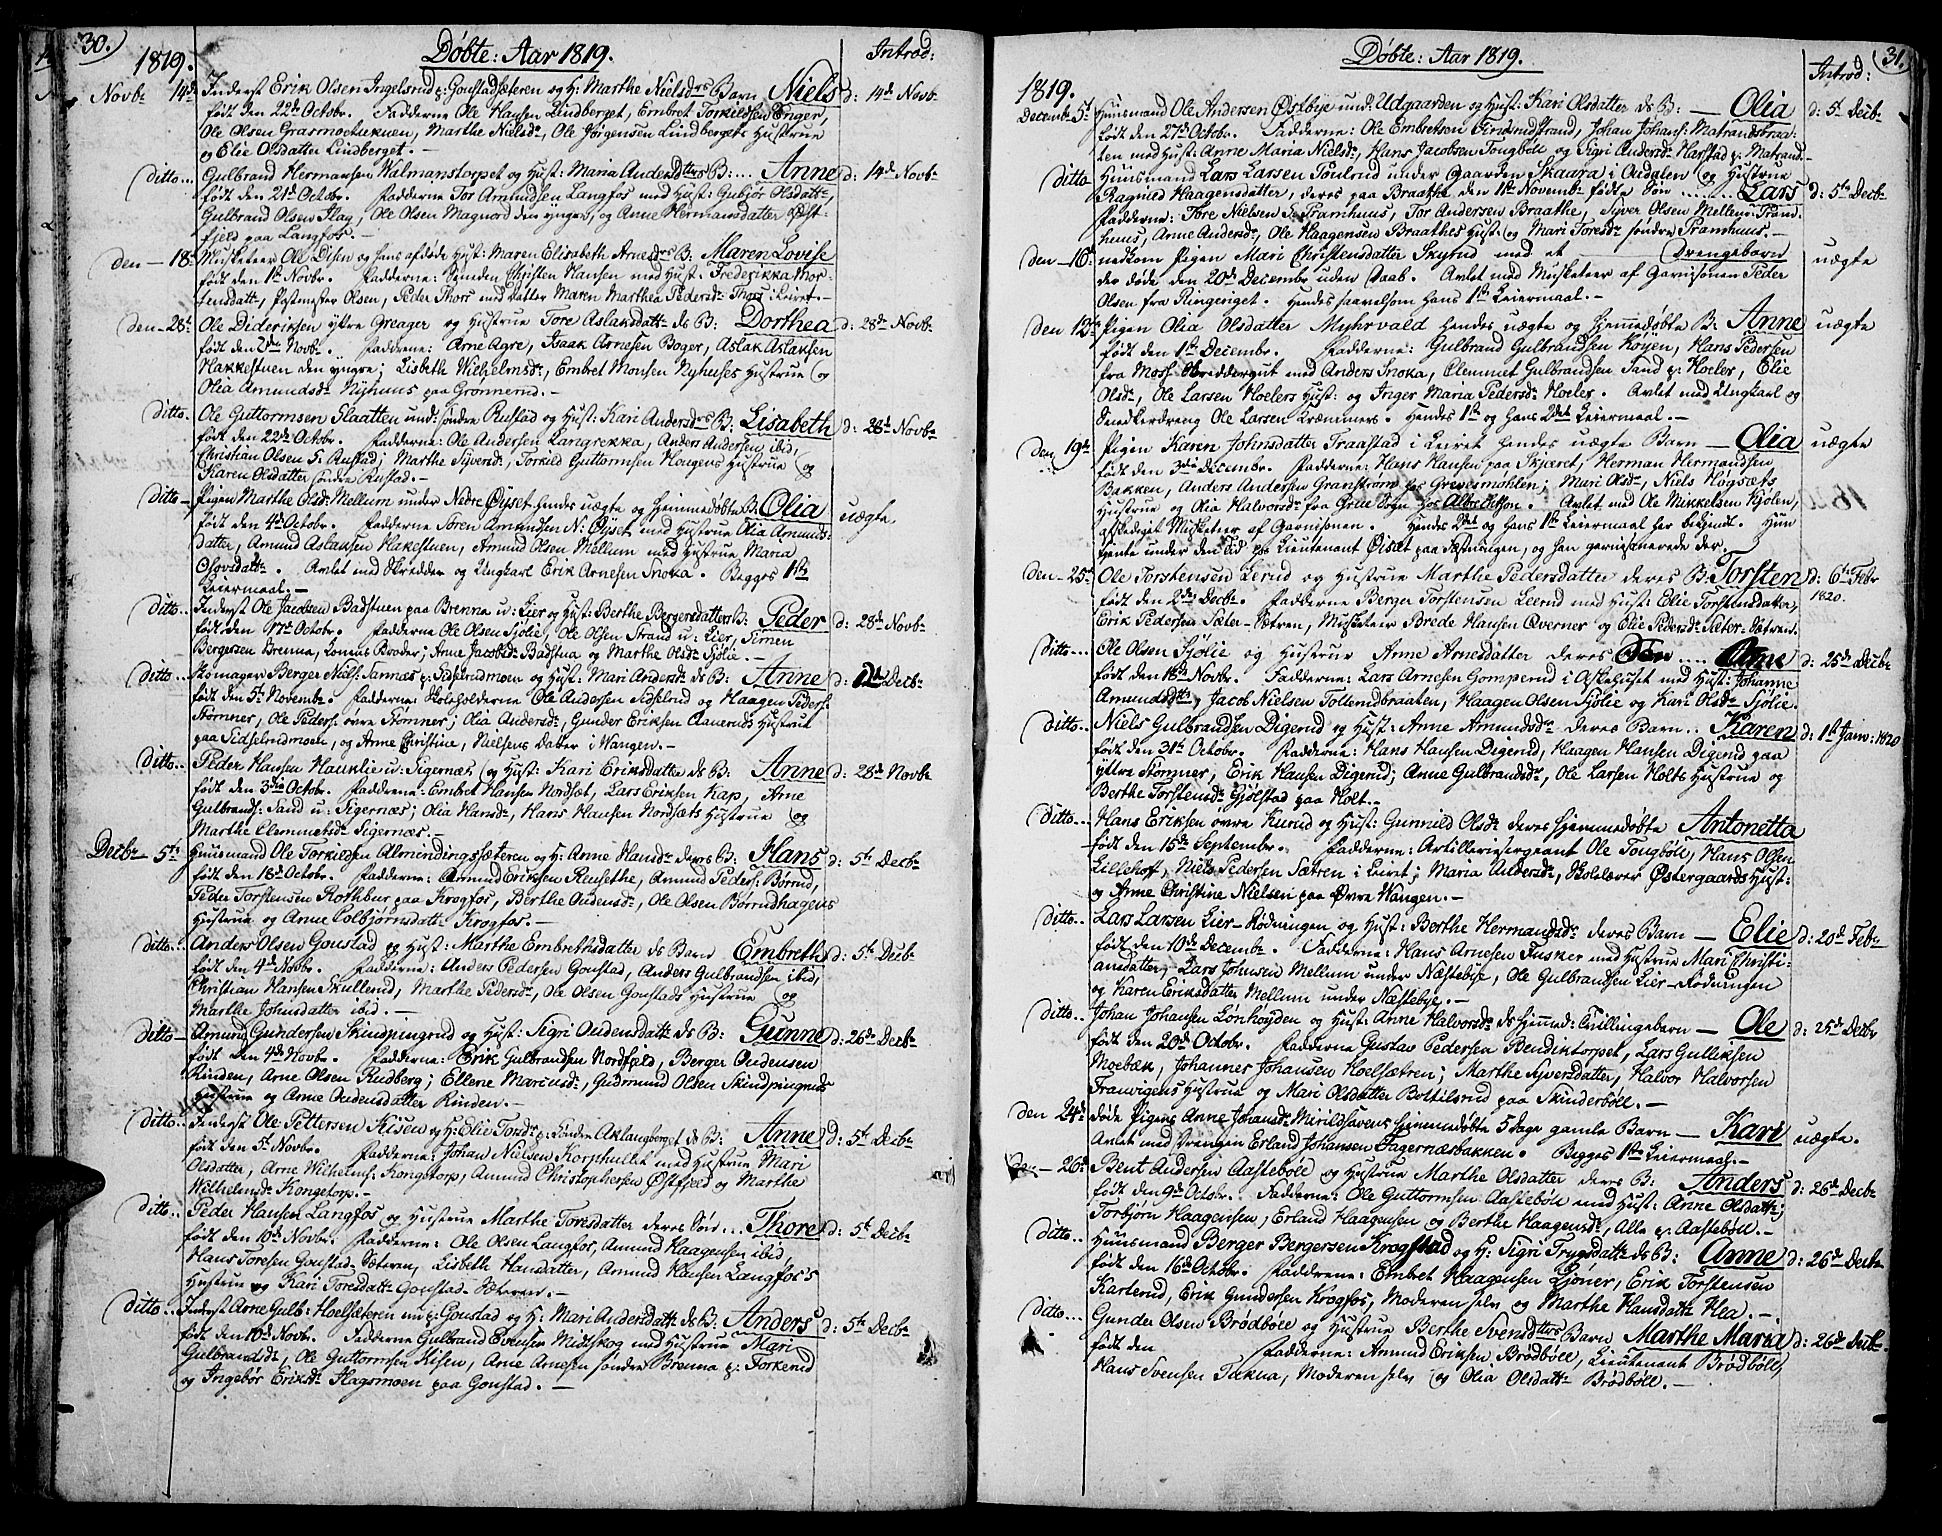 30.)
1819.
Døbte: Aar 1819.
Introd:
Novb: 14de Inderst Erik Olsen Ingelsrud p: Goustadsæteren og H: Marthe Nielsdrs Barn Niels d: 14de Novb:
født den 22de Octobr. Fadderne Ole Hansen Lindberget, Embret Torkildsen Enger,
Ole Olsen Grasmoehuknen, Marthe Nielsdr, Ole Jørgensen Lindbergets Hustrue
og Elie Olsdatter Lindberget. -
ditto... Gulbrand Hermansen Walmanstorpet og Hust: Maria Andersdtters B: ... Anne d: 14de Novb:
født den 21de Octobr. Fadderne Tor Amundsen Langfos med Hust: Gubjør Olsdatt:,
Gulbrand Olsen Flag, Ole Olsen Magnor den yngre, og Anne Hermansdatter Øst-
fjeld paa Langfos. -
den - 18de Musketeer Ole Disen og hans afdøde Hust: Maren Elisabeth Arnesdrs B: Maren Lovise
født den 1te Novbr. Fadderne: Christen Hansen med Hust: Frederikka Mor-
tensdatt:, Postmester Olsen, Peder Thors med datter Maren Marthea Pedersdr Thors i Leiret. -
den - 28de Ole Dideriksen yttre Greager og Hustrue Tore Aslaksdatt: ds B: Dorthea d: 28de Novb:
født den 2den Novbr. Fadderne: Arne Agre, Isaak Arnesen Boger, Aslak Aslaksen
Hakkestuen den yngre; Lisbeth Wilhelmsdr, Embret Monsen Nyhuses Hustrue og
Olia Amundsdr Nyhuus paa Grønnerud. -
ditto.. Ole Guttormsen Slaatten und: søndre Rustad og Hust: Kari Andersdrs B: Lisabeth d: 28de Novb:
født den 22de Octobr. Fadderne: Ole Andersen Langrekka, Anders Andersen ibid,
Christian Olsen S: Rustad; Marthe Syversdr, Torkild Guttormsen Hougens Hustrue og
Karen Olsdatter søndre Rustad. -
ditto - Pigen Marthe Olsdr Mellum under Nedre Øyset hendes uægte og hjemmedøbte B: Olia uægte
født den 4de Octobr. Fadderne Søren Amundsen N: Øyset med Hustrue Olia Amunds-
datter, Amund Aslaksen Hakestuen, Amund Olsen Mellum med Hustrue Maria
Olsdatt:. Avlet med Skredder og Ungkarl Erik Arnesen Snoka. Begges 1ste
Leiermaal. -
ditto.. Inderst Ole Jacobsen Badstuen paa Brenna u: Lier og Hust: Berthe Bergersdatters B: Peder d: 28de Novb:
født den 17de Octobr. Fadderne Ole Olsen Sjølie, Ole Olsen Strand u: Lier, Simen
Bergersen Brenna, Lovens Braader; Arne Jacobsdr Badstua og Marthe Olsdr Sjølie. -
ditto.. Skomager Berger Niels: Sannæs p: Sidselrudmoen og Hust: Mari Andersdr ds B: Anne d: 12te Decb:
født den 5te Novembr. Fadderne: Skoleholderne Ole Andersen Sidselrud og Haagen Peders:
Stømner, Ole Peders: øvre Stømner; Olia Andersdr, Gunder Eriksen Aanerud's Hustrue
paa Sidselrudmoen, og Anne Christine, Nielsens datter i Wangen. -
ditto.. Peder Hansen Hauklie u: Sigernæs og Hust: Kari Eriksdatter ds B: Anne d: 28de Novb:
født den 3die Octobr. Fadderne: Embret Hansen Nordsæt, Lars Eriksen Kap, Arne
Gulbrands: Sand u: Sigernæs; Olia Hansdr, Hans Hansen Nordsæts Hustrue og
Marthe Clemmetsdr Sigernæs. -
Decbr - 5te Huusmand Ole Torkildsen Almindingssæteren og H: Anne Hansdr deres B: Hans d: 5te Decb:
født den 18de Octobr. Fadderne: Amund Eriksen Reusethe, Amund Peders: Børrud,
Peder Torstensen Rothbur paa Krogfos, Berthe Audensdr, Ole Olsen Børrudhagens
Hustrue og Arne Colbjørnsdatt: Krogfos. -
ditto.. Anders Olsen Goustad og Hust: Marthe Embrethsdatter ds Barn Embreth d: 5te Decb:
født den 4de Novbr. Fadderne: Anders Pedersen Goustad, Anders Gulbrandsen ibid,
Christian Hansen Skullerud, Marthe Pedersdr, Ole Olsen Goustads Hustrue og
Marthe Johnsdatter ibid. -
ditto - Amund Gundersen Skindpungrud og Hust: Sigri Audensdatt: ds B: Gunne d: 26de Decb:
født den 4de Novbr. Fadderne: Erik Gulbrandsen Nordfjeld, Berger Audensen
Rinden, Arne Olsen Rudberg; Ellene Mariusdr, Gudmund Olsen Skindpungruds
Hustrue og Anne Audensdatter Rinden. -
ditto.. Inderst Ole Pettersen Kisen og H: Elie Torsdr p: søndre Aklangberget ds B: Anne d: 5te Decb:
født den 5te Novbr. Fadderne: Johan Nielsen Korphullet med Hustrue Mari
Olsdatter, Arne Wilhelms: Kongetorp, Amund Christophersen Østfjeld og Marthe
Wilhelmsdr Kongetorp. -
ditto.. Peder Hansen Langfos og Hustrue Marthe Toresdatter deres Søn ... Thore d: 5te Decb:
født den 10de Novbr. Fadderne: Ole Olsen Langfos, Amund Haagensen ibid,
Hans Toresen Goustad-Sæteren, Lisbeth Hansdatter, Amund Hansen Langfos's
Hustrue og Kari Toresdatt: Goustad-Sæteren. -
ditto.. Inderst Arne Gulb: Hoelsæteren nu p: Goustad og H: Mari Andersdatt: ds B: Anders d: 5te Decb:
født den 10de Novbr. Fadderne Gulbrand Evensen Midtskog med Hustrue Mari
Gulbrandsdr, Ole Guttormsen Kisen, Arne Arnesen søndre Brenna p: Torkerud
og Ingebør Eriksdr Flagsmoen paa Goustad. -
31.
1819.
Døbte: Aar 1819.
Introd:
Decembr 5te Huusmand Ole Andersen Østbye und: Udgaarden og Hust: Kari Olsdatter ds B: - Olia d: 5te Decb:
født den 27de Octobr. Fadderne: Ole Embretsen Finsrudstrand, Johan Johans: Matrandsbraa-
ten med Hust: Anne Maria Nielsdr, Hans Jacobsen Tougbøll og Sigri Andersdr Harstad p: Matrand. -
ditto Huusmand Lars Larsen Poulsrud under Gaarden Skaara i Oudalen og Hustrue
Ragnild Haagensdatter, deres paa Braathe den 11te Novembr fødte Søn ........ Lars d: 5te Decb:
Fadderne: Tore Nielsen S: Framhuus, Tor Andersen Braathe, Syver Olsen Mellem-Fram-
huus, Anne Andersdr, Ole Haagensen Braathes Hust: og Mari Toresdr søndre Framhuus. -
den - 16de nedkom Pigen Mari Christensdatter Skyrud med et drengebarn uægte
der døde den 20de December uden Daab. Avlet med Musketeer af Garnisonen Peder
Olsen fra Ringeriget. Hendes saavelsom Hans 1ste Leiermaal. -
den 12te Pigen Olia Olsdatter Myhrvald hendes uægte og hjemmedøbte B: Anne uægte
født den 1ste Decembr. Fadderne: Gulbrand Gulbrandsen Køyen, Hans Pedersen
fra Moss Skreddersvut med Anders Snoka, Clemmet Gulbrandsen Sand p: Hoeler, Elie
Olsdr, Ole Larsen Hoelers Hust: og Inger Maria Pedersdr Hoeler. Avlet med Ungkarl og
Snedkerdreng Ole Larsen Kræmmers. Hendes 1ste og hans 2det Leiermaal. -
den 19de Pigen Karen Johnsdatter Fraastad i Leiret hendes uægte Barn - Olia uægte
født den 3die Decembr. Fadderne: Hans Hansen paa Skjæret, Herman Hermandsen
Bakken, Anders Andersen Granstrøm hos Grevesmøhlen; Mari Olsdr, Niels Høgsæts
Hustrue og Olia Halvorsdr fra Grue Sogn hos Albrektson. Avlet med Ole Mikkelsen Kjølen,
afskediget Musketeer af Garnisonen. Hendes 2det og hans 1ste Leiermaal her bekjendt. Hun
tjente under den tid hos Lieutenant Øiset paa Fæstningen, og han garnisonerede der.
den - 25de Ole Torstensen Lerud og Hustrue Marthe Pedersdatter deres B: Torsten d: 6te Febr
født den 2den Decbr. Fadderne Berger Torstensen Leerud med Hust: Elie Torstensdatter, 1820.
Erik Pedersen Sæter-Sætren, Musketeer Brede Hansen Overner og Elie Pedersdr Sæter-Sætren.
ditto... Ole Olsen Sjølie og Hustrue Anne Arnesdatter deres Søn .... Arne d: 25de Decb:
født den 18de Novbr. Fadderne: Lars Arnesen Gomperud i Askehuset med Hust: Johanne
Amundsdatt:, Jacob Nielsen Tollemdbraaten, Haagen Olsen Sjølie og Kari Olsdr Sjølie.
ditto Niels Gulbrandsen Digerud og Hust: Anne Amundsdr deres Barn .. Karen d: 1ste Janv: 1820
født den 31te Octobr. Fadderne: Hans Hansen Digerud, Haagen Hansen Digerud paa
yttre Stømner, Erik Hansen Digerud; Anne Gulbrandsdr, Ole Larsen Holts Hustrue og
Berthe Torstensdr Gjølstad paa Holt. -
ditto... Hans Eriksen øvre Kurud og Hust: Gunnild Olsdr deres hjemmedøbte Antonetta
født den 15de Septembr. Fadderne: Artilleriesergeant Ole Tougbøll, Hans Olsen
Lillehoff, Niels Pedersen Sætren i Leiret; Maria Andersdr, Skolelærer Østergaards Hust:
og Anne Christine Nielsen paa Øvre Wangen. -
ditto.. Lars Larsen Lier-Rødningen og Hust: Berthe Hermandsdr deres Barn - Elie d: 20de Feb:
født den 10de Decembr. Fadderne: Hans Arnesen Tusker med Hustrue Mari Christi-
ansdatter, Lars Johnsen Mellum under Næstebye, Ole Gulbrandsen Lier-Rødningen
og Karen Eriksdatter Mellum under Næstebye. -
ditto.. Johan Johansen Lønhøyden og Hust: Anne Halvorsdr ds hjemmed: Tvillingebarn - Ole d: 25de Decbr
født den 20de Octobr. Fadderne Gustav Pedersen Bendiktorpet, Lars Gulliksen
Moebæk, Johannes Johansen Hoelsætren; Marthe Syversdatter, Halvor Halvorsen
Franvigens Hustrue og Mari Olsdatter Boltilsrud paa Skinderbøll. -
den 24de døde Pigens Anne Johansdr Mirildsævens hjemmedøbte 5 dage gamle Barn - Kari uægte.
Avlet med Drengen Erland Johansen Fagernæsbakken. Begges 1ste Leiermaal. -
- 26de Bent Andersen Aastebøll og Hustrue Marthe Olsdatter deres B: Anders d: 26de Decb:
født den 9de Octobr. Fadderne: Ole Guttormsen Aastebøll med Hust: Anne Olsdatt:;
Torbjørn Haagensen, Erland Haagensen og Berthe Haagensdr, Alle p: Aastebøll. -
ditto.. Huusmand Berger Bergersen Krogstad og H: Sigri Trygsdatt: ds B: Anne d: 26de Decb:
født den 16de Octobr. Fadderne: Embret Haagensen Gjøner, Erik Torstensen
Karterud, Erik Gundersen Krogfos, Moderen selv og Marthe Hansdatt: Hea. -
ditto... Gunder Olsen Brødbøll og Hustrue Berthe Svensdtters Barn Marthe Maria d: 26de Decb:
født den Fadderne: Amund Eriksen Brødbøll, Lieutenant Brødbøll,
Hans Svensen Takna, Moderen selv og Olia Olsdatt: Brødbøll. -